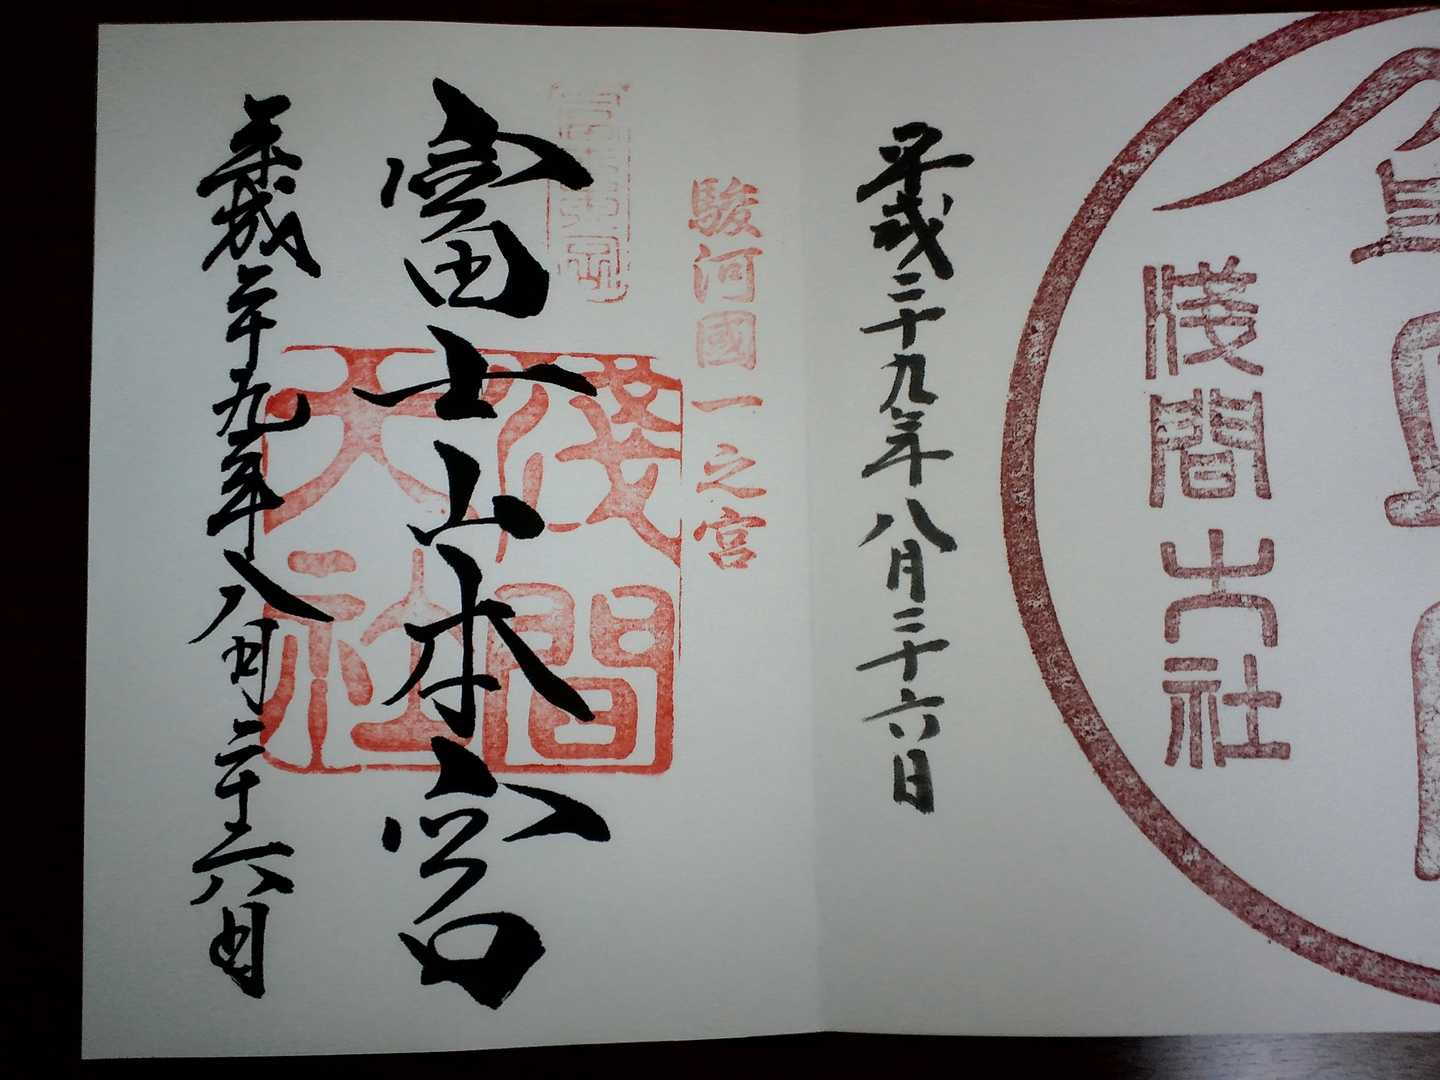 淺間大社
平成二十九年八月二十六日
駿河國一之宮
富士山本宮
淺間大社
平成二十九年八月二十六日